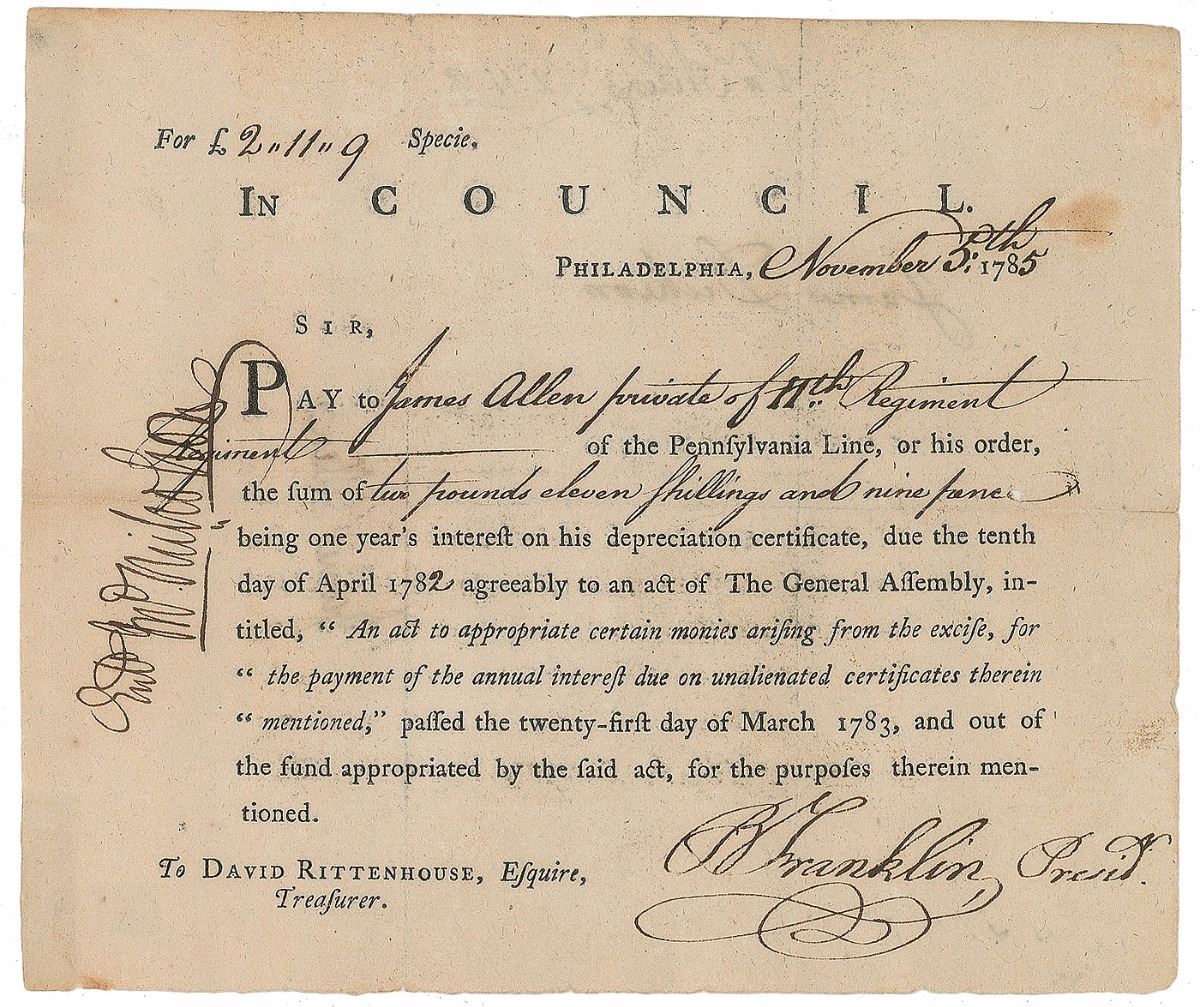 For £ 2 " 11 " 9 Specie.
IN COUNCIL.
PHILADELPHIA, November 5th 1785
SIR,
PAY to James Allen private of 11th Regiment
Regiment of the Pennſylvania Line, or his order,
the ſum of two pounds eleven ſhillings and nine pence
being one year's intereſt on his depreciation certificate, due the tenth
day of April 1782 agreeably to an act of The General Aſſembly, in-
titled, " An act to appropriate certain monies ariſing from the exciſe, for
" the payment of the annual intereſt due on unalienated certificates therein
" mentioned," paſſed the twenty-firſt day of March 1783, and out of
the fund appropriated by the ſaid act, for the purpoſes therein men-
tioned.
B Franklin, Presidt.
To DAVID RITTENHOUSE, Eſquire,
Treaſurer.